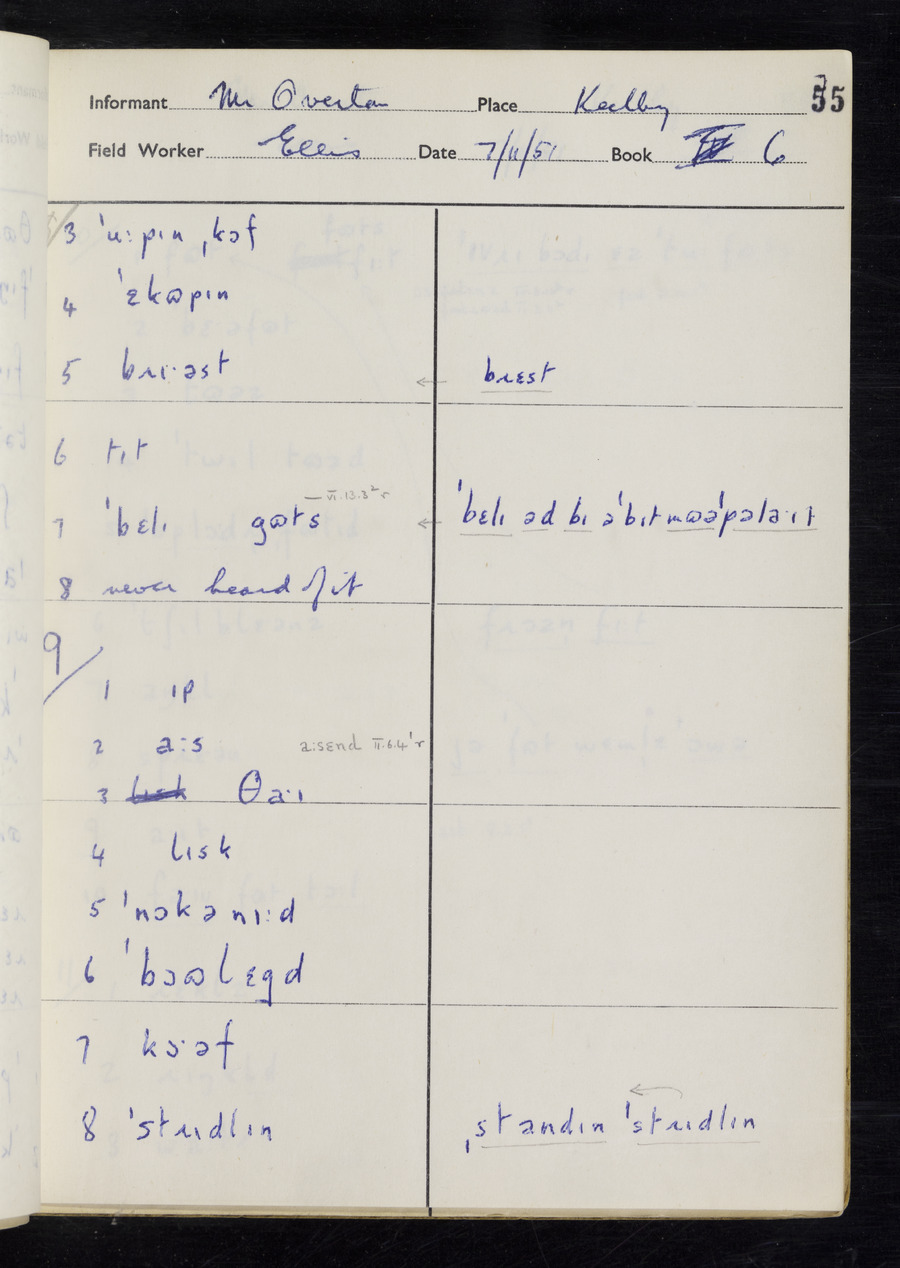 Informant Mr Overton Place Keelby 55
Field Worker Ellis Date 7/11/51 Book 6
3 ˈuːpɪn ˌkɔf
4 ˈɛkɷpɪn
5 bɹɪˑəst ← bɹɛst
6 tɪt
7 ˈbɛlɪ gɷts — VI.13.3² r ← ˈbɛlɪ əd bɪ əˈbɪt mɷəˈpəlaˑɪt
8 never heard of it
9/
1 ɪp
2 aːs aːsɛnd II.6.4ˈr
3 θaˑɪ
4 lɪsk
5 ˈnɔkənɪːd
6 ˈbɔɷlɛgd
7 kɔˑəf
8 ˈstɹɪdlɪn ˌstandɪn ˈstɹɪdlɪn